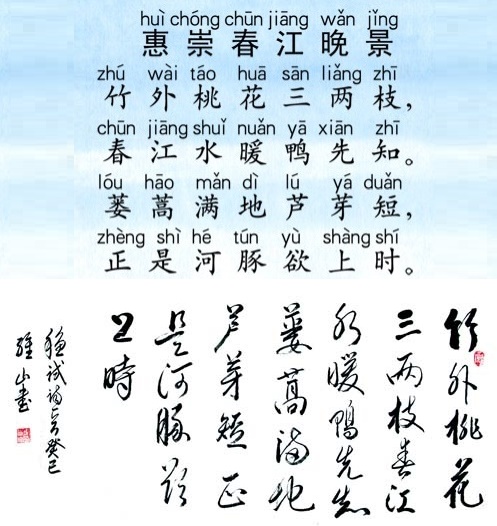 huì chóng chūn jiāng wǎn jǐng
惠崇春江晚景
zhú wài táo huā sān liǎng zhī
竹外桃花三两枝，
chūn jiāng shuǐ nuǎn yā xiān zhī
春江水暖鸭先知。
lóu hāo mǎn dì lú yá duǎn
蒌蒿满地芦芽短，
zhèng shì hé tún yù shàng shí
正是河豚欲上时。
竹外桃花
三两枝春江
水暖鴨先知
蒌蒿满地
芦芽短正
是河豚欲
上時
癸巳
山书